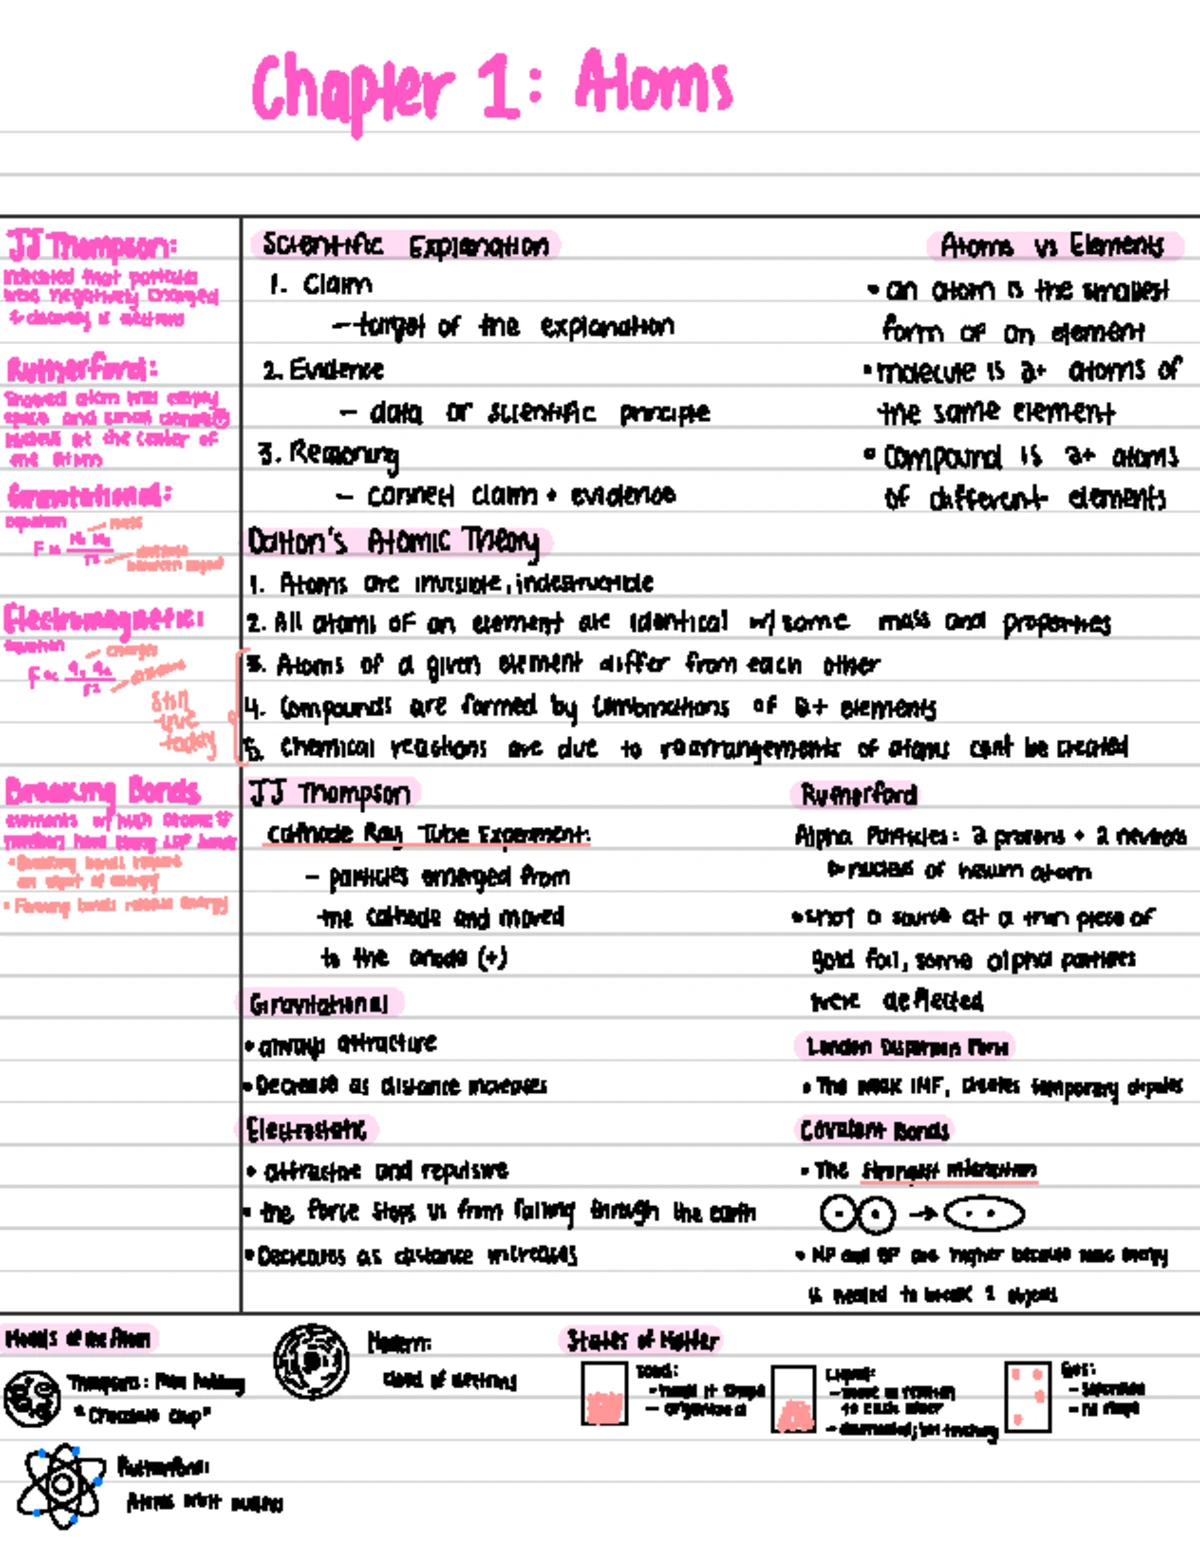 Chapter 1: Atoms
JJ Thompson:
indicated that particles
were negatively charged
& discovery of electrons
Rutherford:
Showed atom was empty
space and small dense
nucleus at the center of
the atom
Gravitational:
equation
mass
F ∝ M₁ M₂ / r²
distance
between object
Electromagnetic:
equation
charges
F ∝ q₁ q₂ / r²
distance
Still
true
today
Breaking Bonds
elements w/ high atomic
numbers have strong LDF
• Breaking bonds require
an input of energy
• Forming bonds release energy
Scientific Explanation
1. Claim
– target of the explanation
2. Evidence
– data or scientific principle
3. Reasoning
– connect claim + evidence
Atoms vs Elements
• an atom is the smallest
form of an element
• molecule is 2+ atoms of
the same element
• compound is 2+ atoms
of different elements
Dalton's Atomic Theory
1. Atoms are invisible, indestructible
2. All atoms of an element are identical w/ same mass and properties
3. Atoms of a given element differ from each other
4. Compounds are formed by combinations of 2+ elements
5. Chemical reactions are due to rearrangements of atoms cant be created
JJ Thompson
Cathode Ray Tube Experiment:
– particles emerged from
the cathode and moved
to the anode (+)
Gravitational
• always attractive
• Decrease as distance increases
Electrostatic
• attractive and repulsive
• the force stops us from falling through the earth
• Decreases as distance increases
Rutherford
Alpha Particles: 2 protons + 2 neutrons
nucleus of helium atom
• shot a source at a thin piece of
gold foil, some alpha particles
were deflected
London Dispersion Force
• The weak IMF, creates temporary dipoles
Covalent Bonds
• The strongest interaction
• MP and BP are higher because more energy
is needed to break 2 objects
Models of the Atom
Thompson: Plum Pudding
"Chocolate chip"
Rutherford:
Atoms orbit nucleus
Modern:
cloud of electrons
States of Matter
Solid:
– organized
Liquid:
to each other
Gas:
– no shape